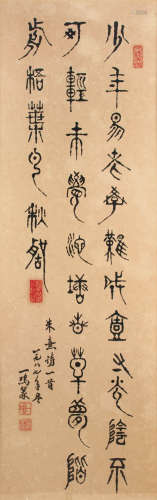 少年易老學難成壹寸光陰不
可輕未覺池塘春草夢階
前梧葉已秋聲
朱熹詩一首
一九八七年冬